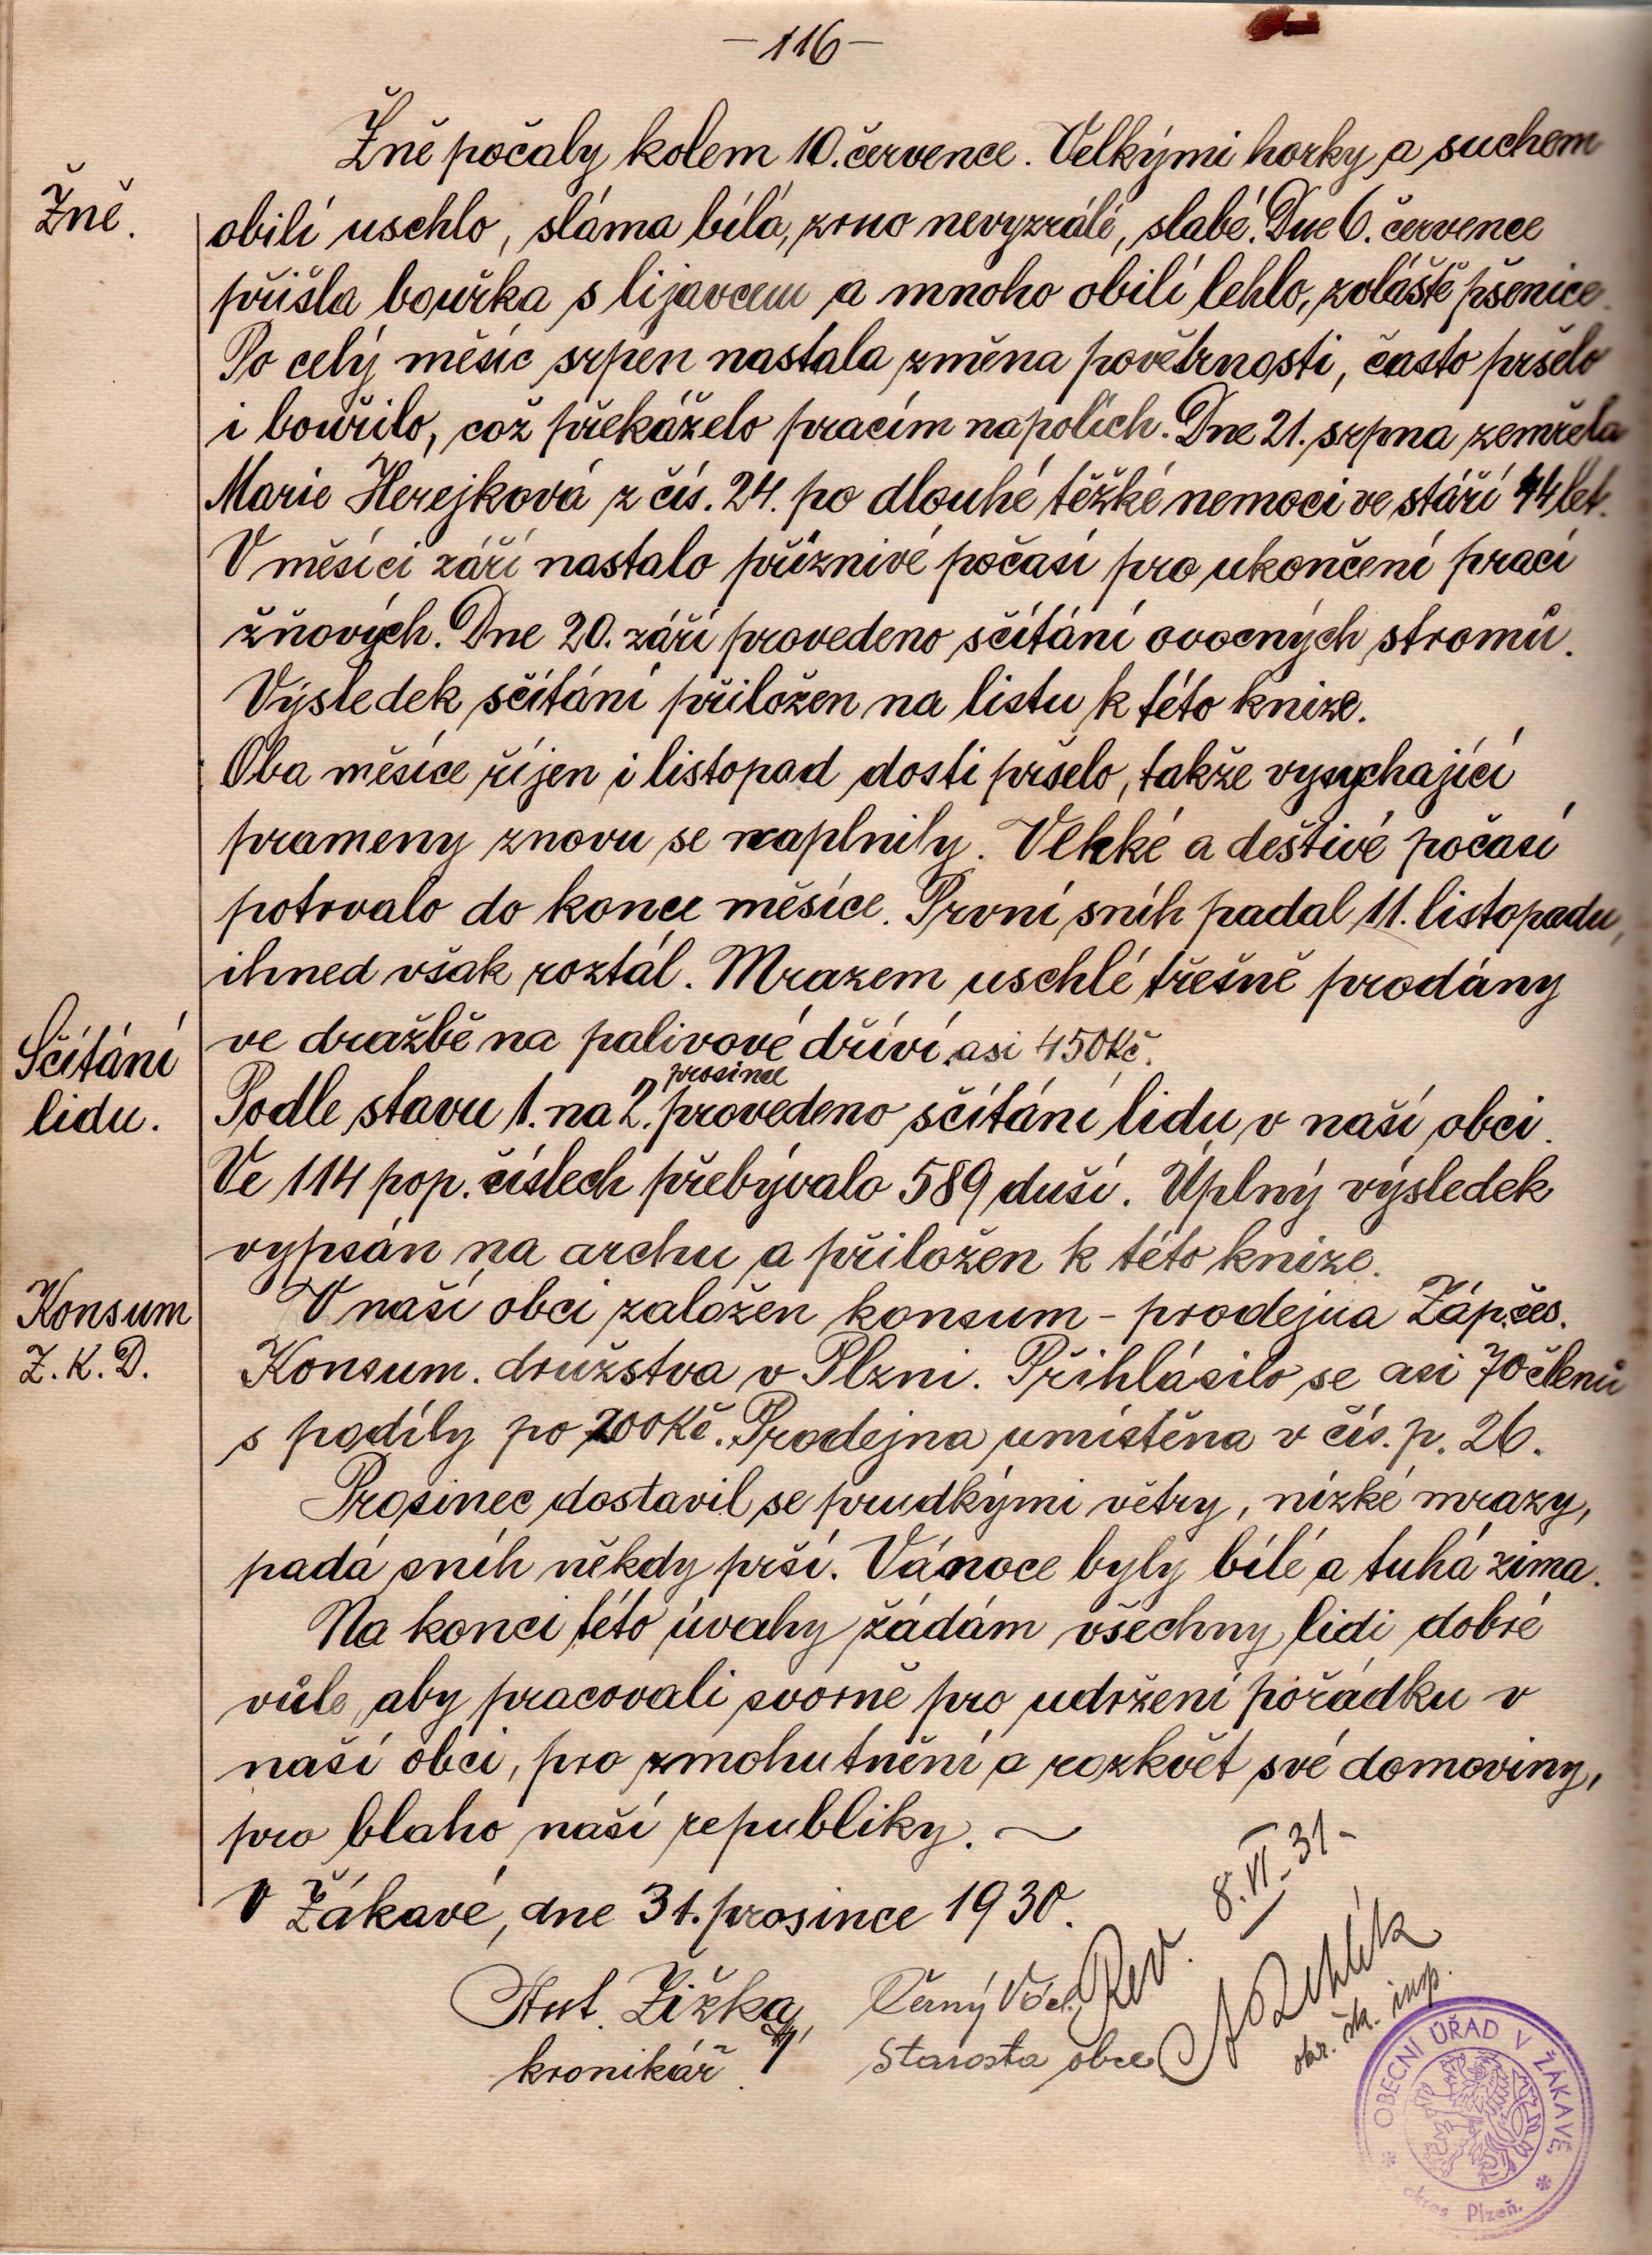 —116—
Žně počaly kolem 10. července. Velkými horky a suchem
Žně.
obilí uschlo, sláma bílá, zrno nevyzrálé, slabé. Dne 6. července
přišla bouřka s lijavcem a mnoho obilí lehlo, zvláště pšenice.
Po celý měsíc srpen nastala změna povětrnosti, často pršelo
i bouřilo, což překáželo pracím na polích. Dne 21. srpna zemřela
Marie Herejková z čís. 24. po dlouhé těžké nemoci ve stáří 44 let.
V měsíci září nastalo příznivé počasí pro ukončení prací
žňových. Dne 20. září provedeno sčítání ovocných stromů.
Výsledek sčítání přiložen na listu k této knize.
Oba měsíce říjen i listopad dosti pršelo, takže vysychající
prameny znovu se naplnily. Vlhké a deštivé počasí
potrvalo do konce měsíce. První sníh padal 11. listopadu,
ihned však roztál. Mrazem uschlé třešně prodány
ve dražbě na palivové dříví asi 450 Kč.
Sčítání
lidu.
prosince
Podle stavu 1. na 2. provedeno sčítání lidu v naší obci.
Ve 114 pop. číslech přebývalo 589 duší. Úplný výsledek
vypsán na archu a přiložen k této knize.
Konsum
Z. K. D.
V naší obci založen konsum - prodejna Záp. čes.
Konsum. družstva v Plzni. Přihlásilo se asi 70 členů
s podíly po 200 Kč. Prodejna umístěna v čís. p. 26.
Prosinec dostavil se prudkými větry, nízké mrazy,
padá sníh někdy prší. Vánoce byly bílé a tuhá zima.
Na konci této úvahy žádám všechny lidi dobré
vůle, aby pracovali svorně pro udržení pořádku v
naší obci, pro zmohutnění a rozkvět své domoviny,
pro blaho naší republiky. ~
V Žákavé, dne 31. prosince 1930.
Ant. Žižka,
kronikář.
Černý Václ.
starosta obce
Rev. 8. VI. 31-
okr. šk. insp.
OBECNÍ ÚŘAD V ŽÁKAVĚ
okres Plzeň.